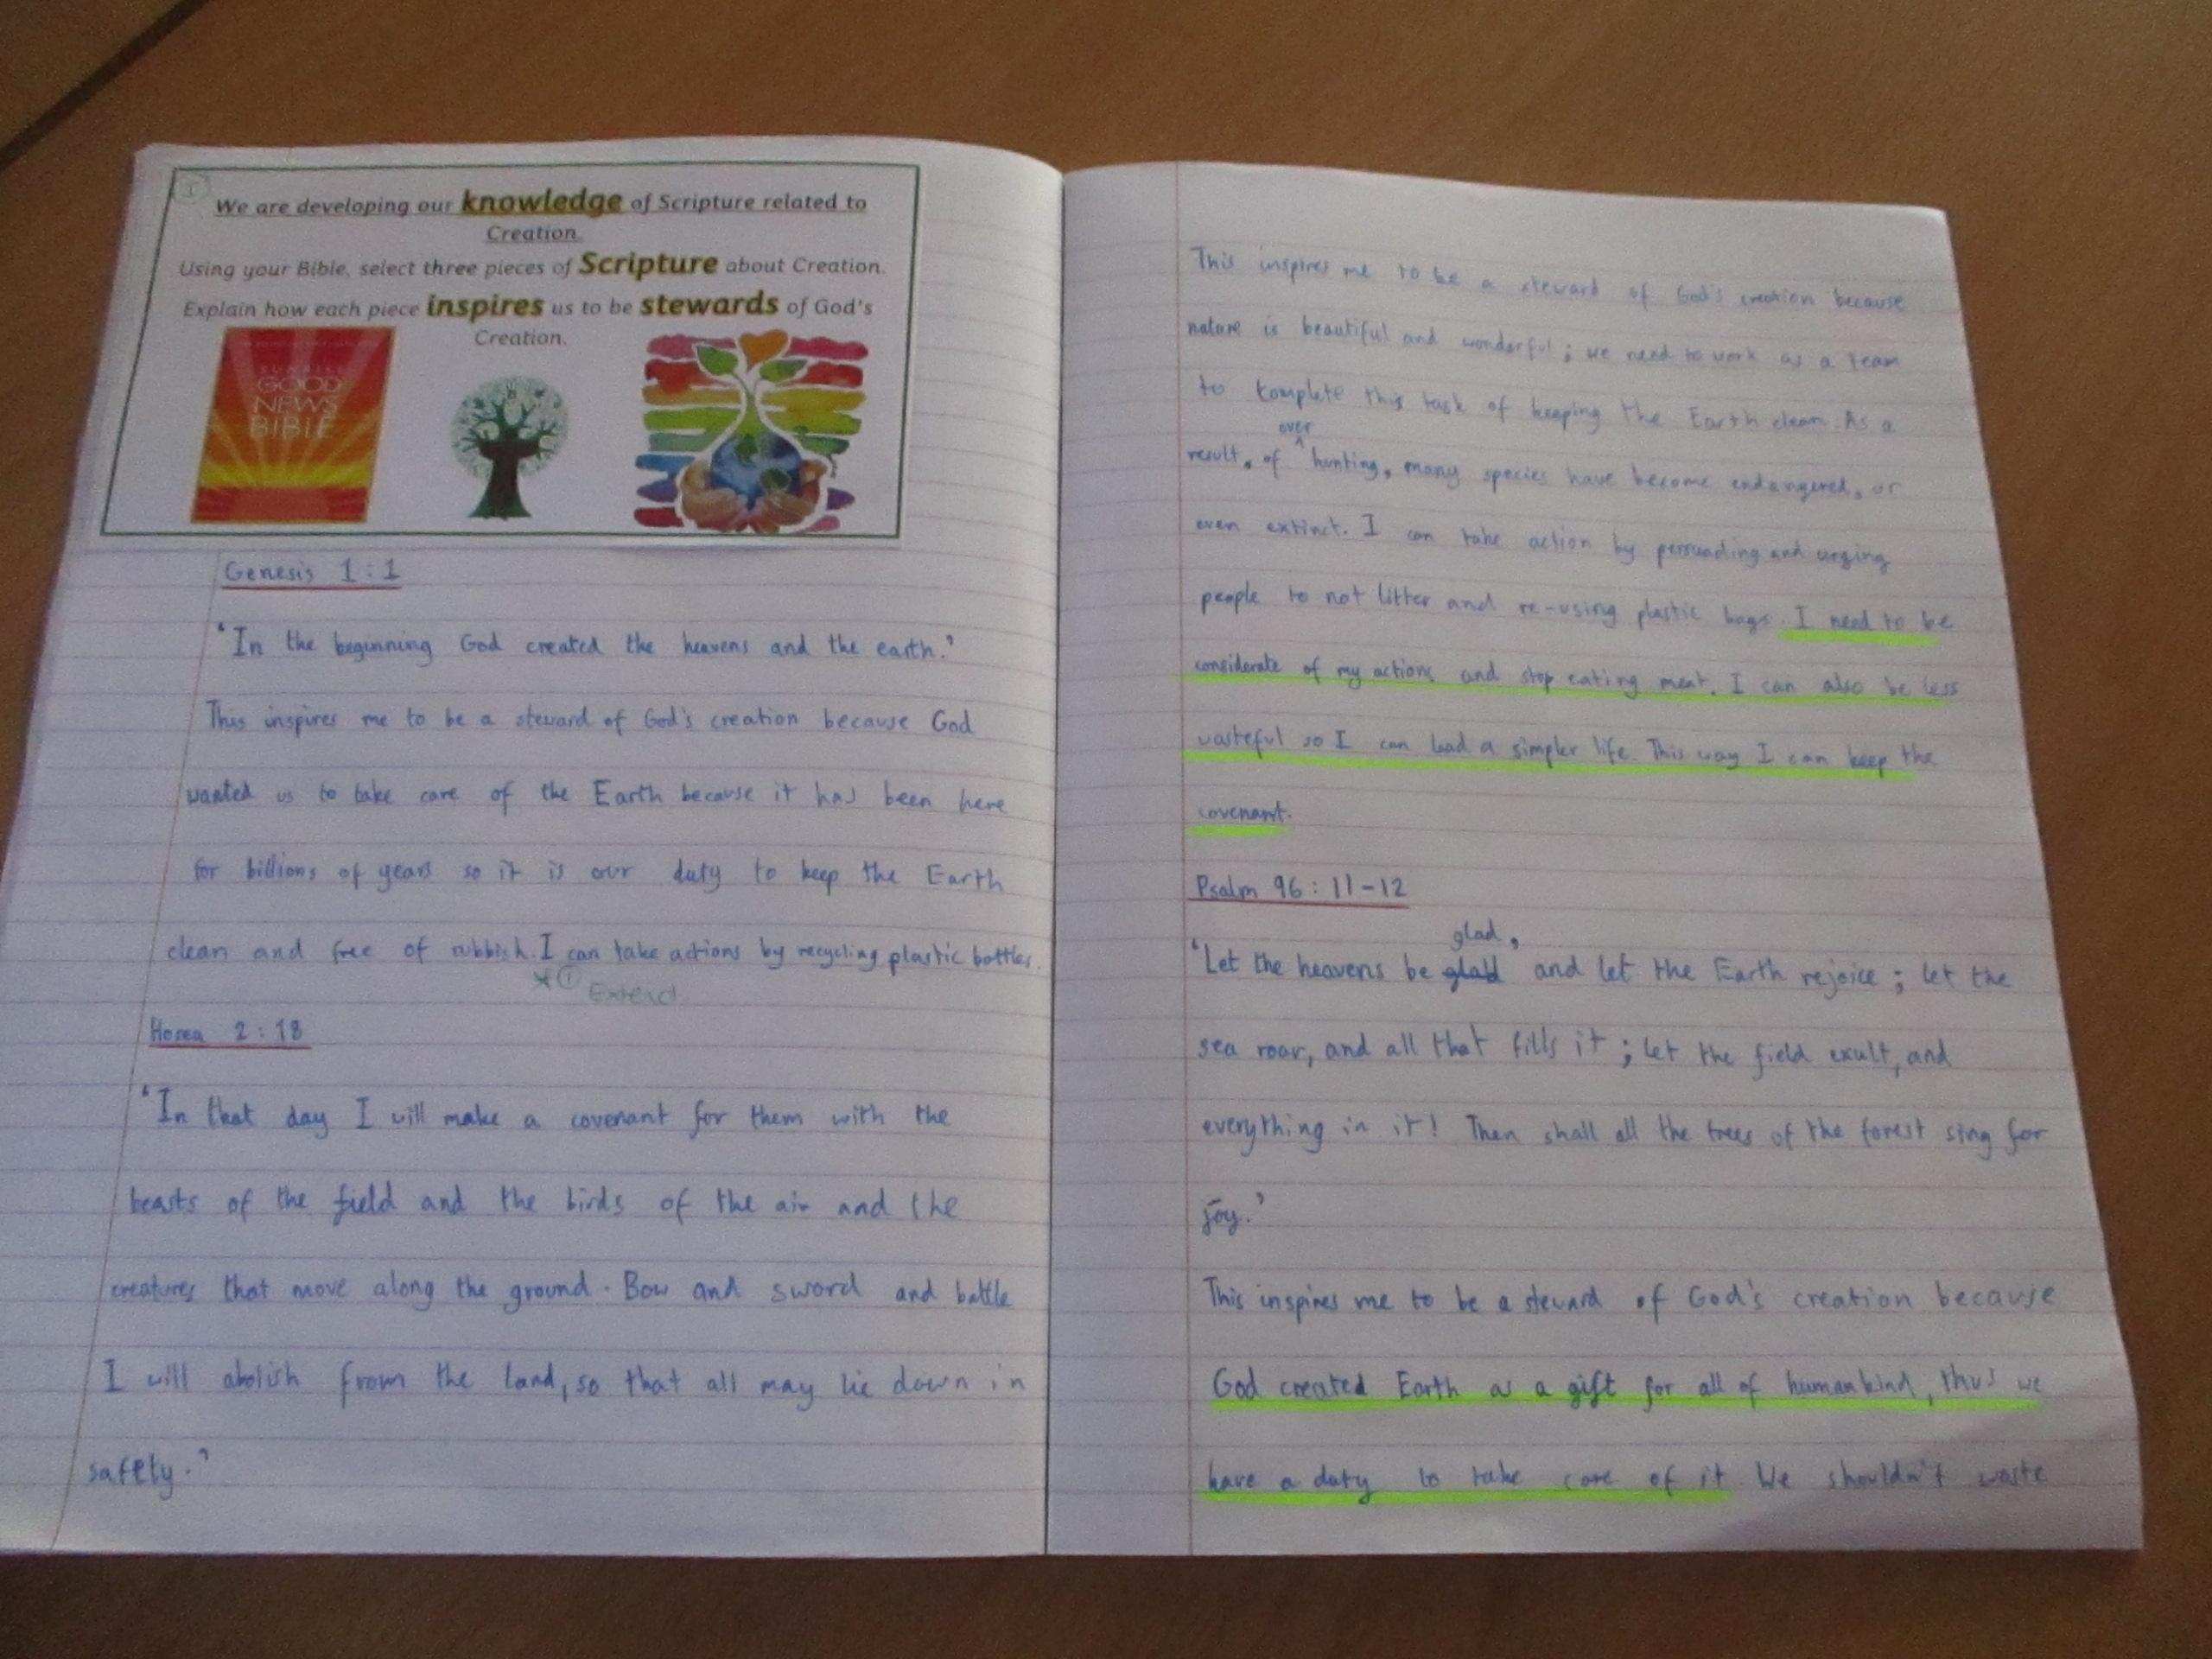 I
We are developing our knowledge of Scripture related to
Creation.
Using your Bible, select three pieces of Scripture about Creation.
Explain how each piece inspires us to be stewards of God's
Creation.
SUNRISE
GOOD
NEWS
BIBLE
Genesis 1:1
'In the beginning God created the heavens and the earth.'
This inspires me to be a steward of God's creation because God
wanted us to take care of the Earth because it has been here
for billions of years so it is our duty to keep the Earth
clean and free of rubbish. I can take actions by recycling plastic bottles.
*① Extend
Hosea 2:18
'In that day I will make a covenant for them with the
beasts of the field and the birds of the air and the
creatures that move along the ground. Bow and sword and battle
I will abolish from the land, so that all may lie down in
safety.'
This inspires me to be a steward of God's creation because
nature is beautiful and wonderful; we need to work as a team
to complete this task of keeping the Earth clean. As a
over
result, of ^ hunting, many species have become endangered, or
even extinct. I can take action by persuading and urging
people to not litter and re-using plastic bags. I need to be
considerate of my actions and stop eating meat. I can also be less
wasteful so I can lead a simpler life. This way I can keep the
covenant.
Psalm 96:11-12
glad,
'Let the heavens be glad and let the Earth rejoice; let the
sea roar, and all that fills it; let the field exult, and
everything in it! Then shall all the trees of the forest sing for
joy.'
This inspires me to be a steward of God's creation because
God created Earth as a gift for all of humankind, thus we
have a duty to take care of it. We shouldn't waste